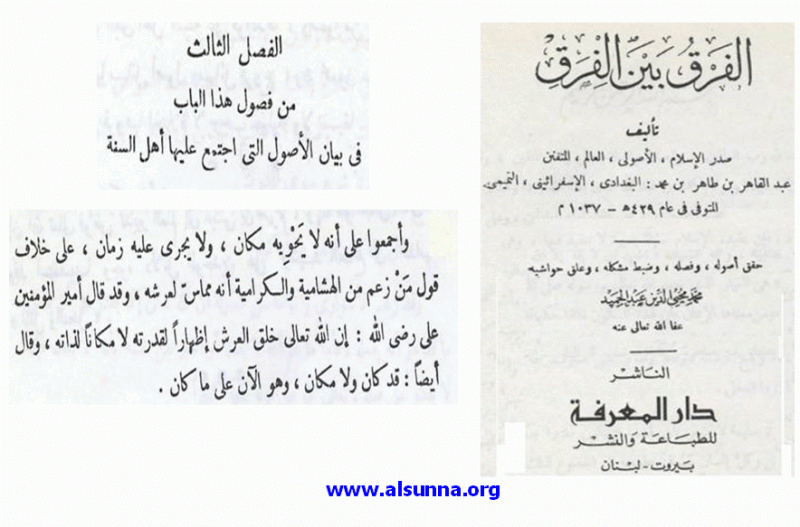 الفصل الثالث
من فصول هذا الباب
فى بيان الأصول التى اجتمع عليها أهل السنة
وأجمعوا على أنه لا تَحْوِيه مكان ، ولا يجرى عليه زمان ، على خلاف
قول مَنْ زعم من الهشامية والكرامية أنه مماسّ لعرشه ، وقد قال أمير المؤمنين
على رضى الله : إن الله تعالى خلق العرش إظهاراً لقدرته لا مكاناً لذاته ، وقال
أيضاً : قد كان ولا مكان ، وهو الآن على ما كان .
الفَرْقُ بَيْنَ الفِرَقِ
تأليف
صدر الإسلام ، الأصولى ، العالم ، المتفنن
عبد القاهر بن طاهر بن محمد : البغدادى ، الإسفرائينى ، التميمى
المتوفى فى عام ٤٢٩هـ – ١٠٣٧ م
حقق أصوله ، وفصله ، وضبط مشكله ، وعلق حواشيه
محمد محيى الدين عبد الحميد
عفا الله تعالى عنه
الناشر
دار المعرفة
للطباعة والنشر
بيروت - لبنان
www.alsunna.org